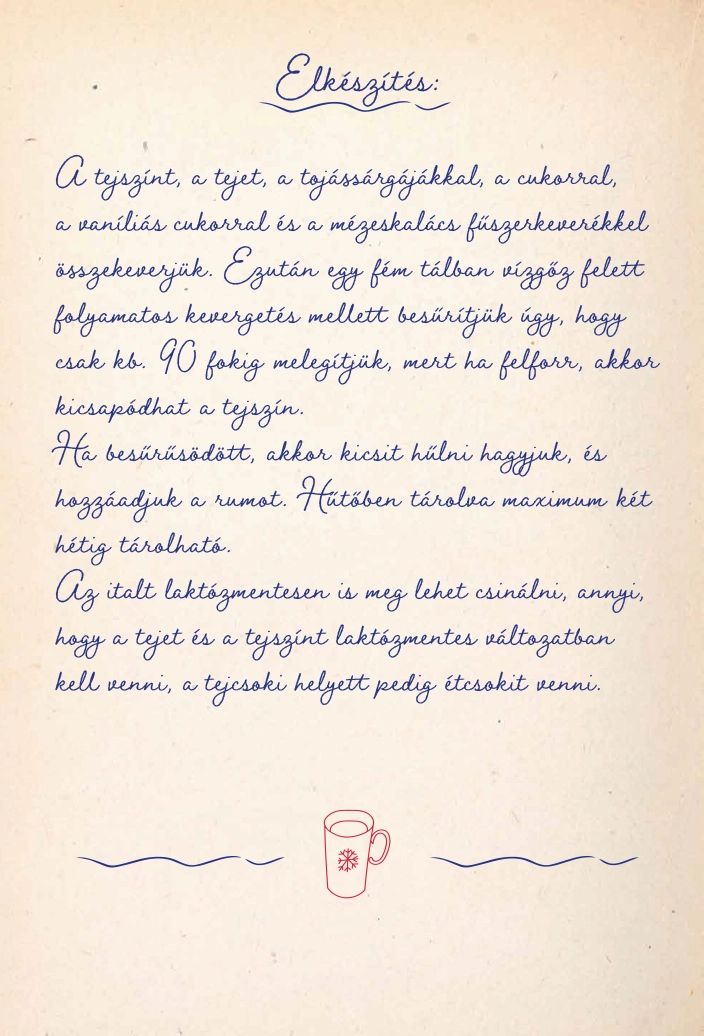 Elkészítés:
A tejszínt, a tejet, a tojássárgájákkal, a cukorral,
a vaníliás cukorral és a mézeskalács fűszerkeverékkel
összekeverjük. Ezután egy fém tálban vízgőz felett
folyamatos kevergetés mellett besűrítjük úgy, hogy
csak kb. 90 fokig melegítjük, mert ha felforr, akkor
kicsapódhat a tejszín.
Ha besűrűsödött, akkor kicsit hűlni hagyjuk, és
hozzáadjuk a rumot. Hűtőben tárolva maximum két
hétig tárolható.
Az italt laktózmentesen is meg lehet csinálni, annyi,
hogy a tejet és a tejszínt laktózmentes változatban
kell venni, a tejcsoki helyett pedig étcsokit venni.